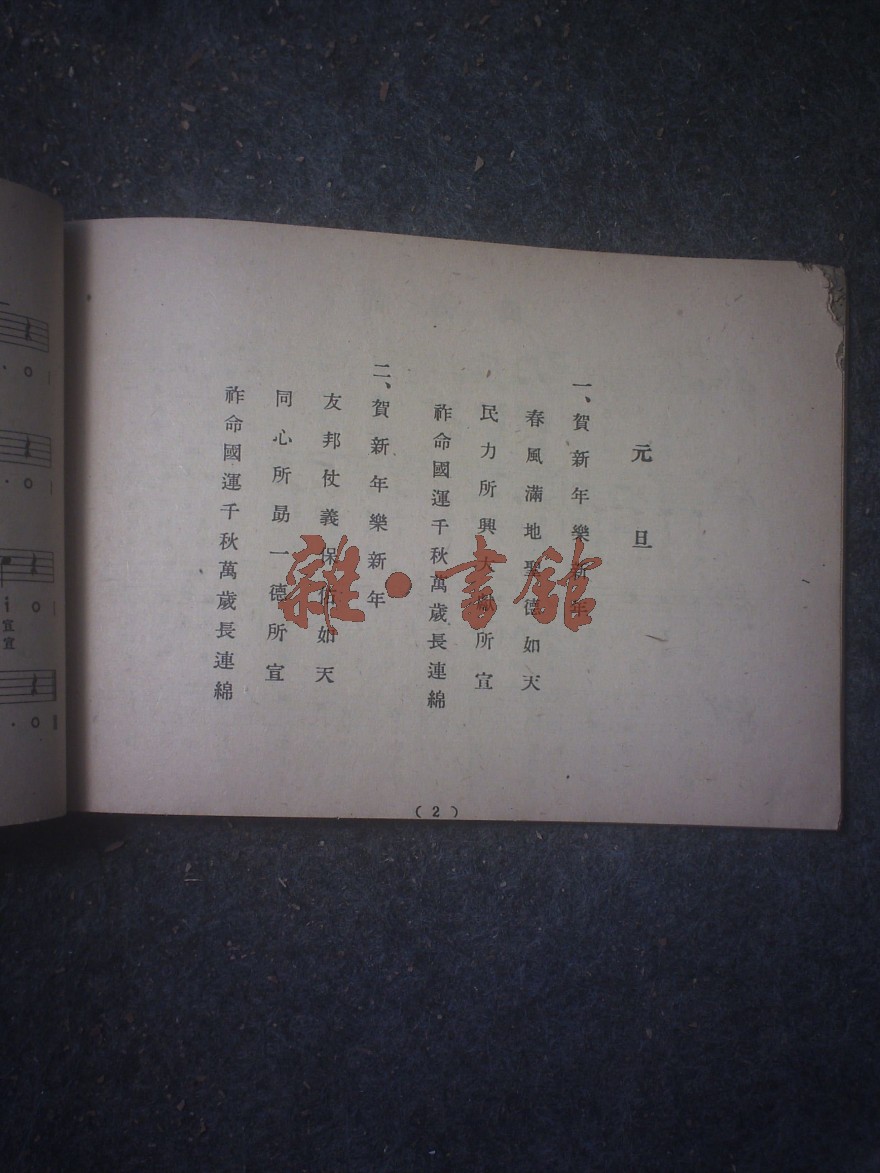 元旦
一、賀新年樂新年
春風滿地聖德如天
民力所興大猷所宣
祚命國運千秋萬歲長連綿
二、賀新年樂新年
友邦仗義保佑如天
同心所勗一德所宣
祚命國運千秋萬歲長連綿
(2)
雜·書館
· o
· o
i o
宣
宣
· o